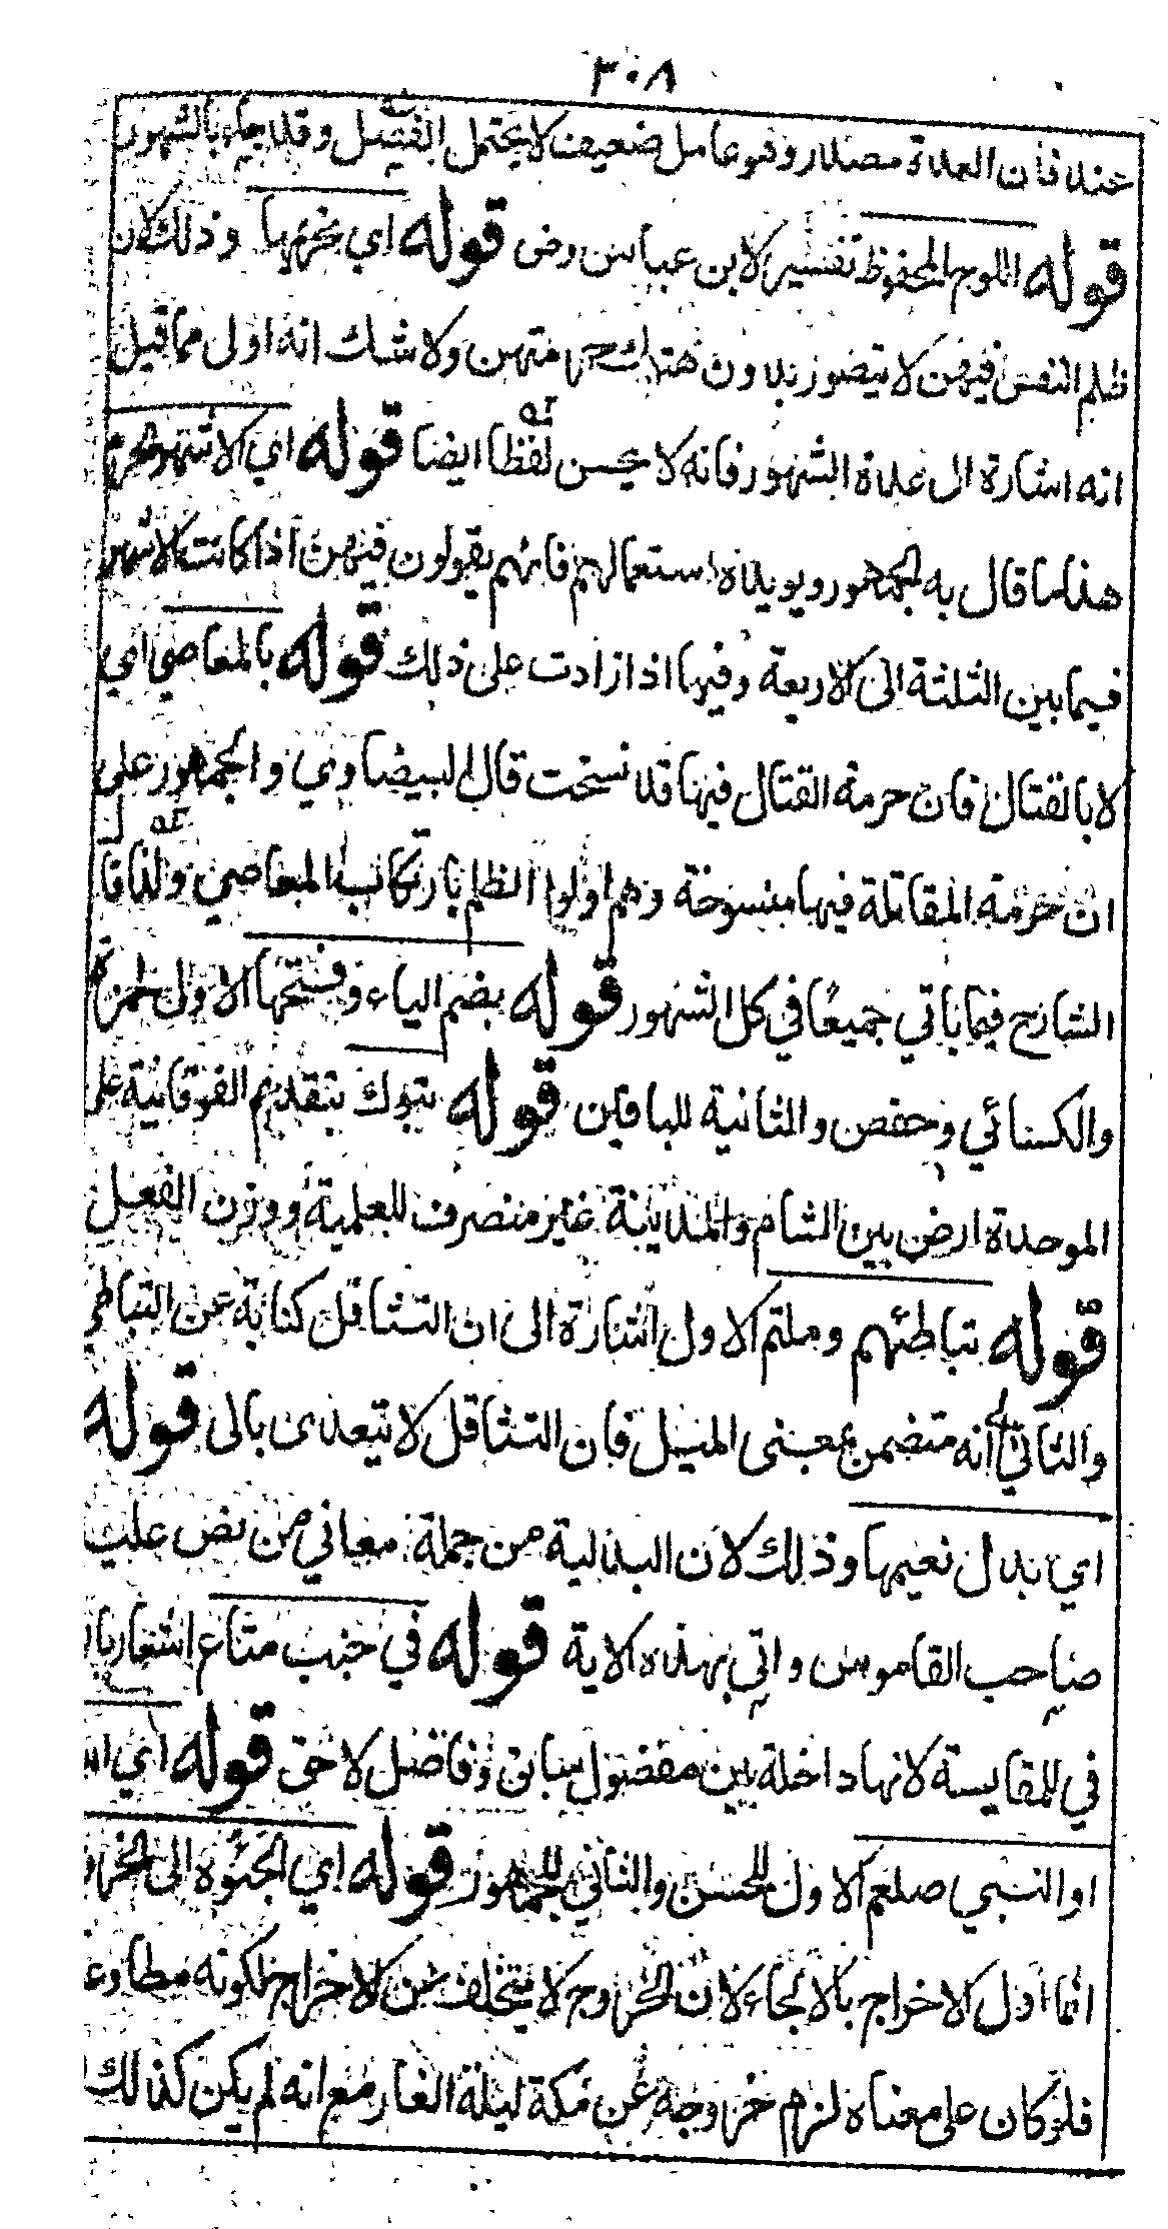 ٣٠٨
عند فان العدة مصدر وهو عامل ضعيف لا يحتمل الفصل وقد حيل بالشهور
قوله اللوح المحفوظ تفسير لابن عباس رض قوله اي بحرمتها وذلك لان
ظلم النفس فيهن لا يتصور بدون هتك حرمتهن ولا شك انه اولى مما قيل
انه اشارة الى عدة الشهور فانه لا يحسن لفظا ايضا قوله اي الاشهر الحرم
هذا ما قال به الجمهور ويويده استعمالهم فانهم يقولون فيهن اذا كانت الاشهر
فيما بين الثلثة الى الاربعة وفيها اذا زادت على ذلك قوله بالمعاصي اي
لا بالقتال فان حرمة القتال فيها قد نسخت قال البيضاوي والجمهور على
ان حرمة المقاتلة فيها منسوخة وهم اولوا الظلم بارتكاب المعاصي ولذا قال
الشارح فيما ياتي جميعا في كل الشهور قوله بضم الياء وفتحها الاول لحمزة
والكسائي وحفص والثانية للباقين قوله تبوك بتقديم الفوقانية على
الموحدة ارض بين الشام والمدينة غير منصرف للعلمية ووزن الفعل
قوله تباطئهم وملتم الاول اشارة الى ان التثاقل كناية عن التباطي
والثاني الى انه متضمن بمعنى الميل فان التثاقل لا يتعدى بالى قوله
اي بدل نعيمها وذلك لان البدلية من جملة معاني من نص عليه
صاحب القاموس واتي بهذه الاية قوله في جنب متاع اشعار بان
في للمقايسة لانها داخلة بين مفضول سابق وفاضل لاحق قوله اي الله
او النبي صلعم الاول للحسن والثاني للجمهور قوله اي الجئوه الى الخروج
انما اول الاخراج بالالجاء لان الخروج لا يتخلف عن الاخراج لكونه مطاوعه
فلو كان على معناه لزم خروجه عن مكة ليلة الغار مع انه لم يكن كذلك